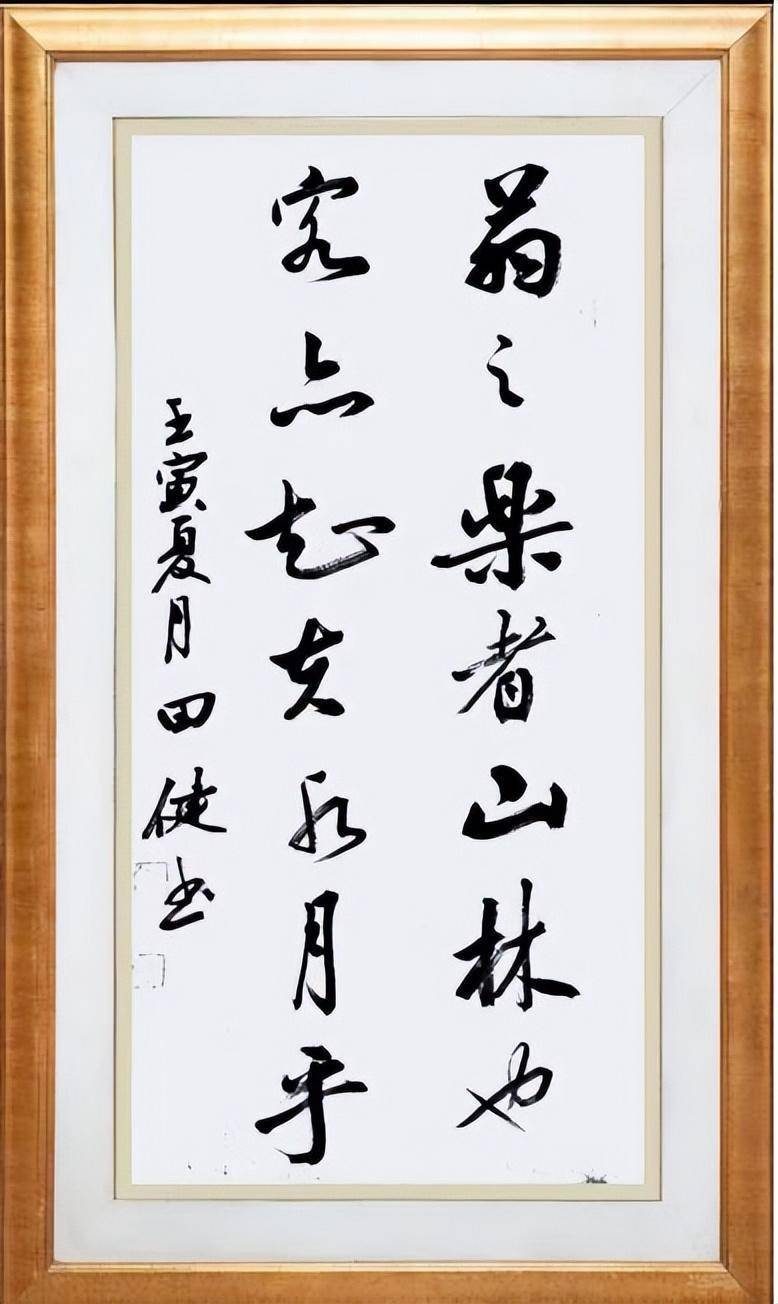 翁之樂者山林也
客亦知夫水月乎
壬寅夏月田健书